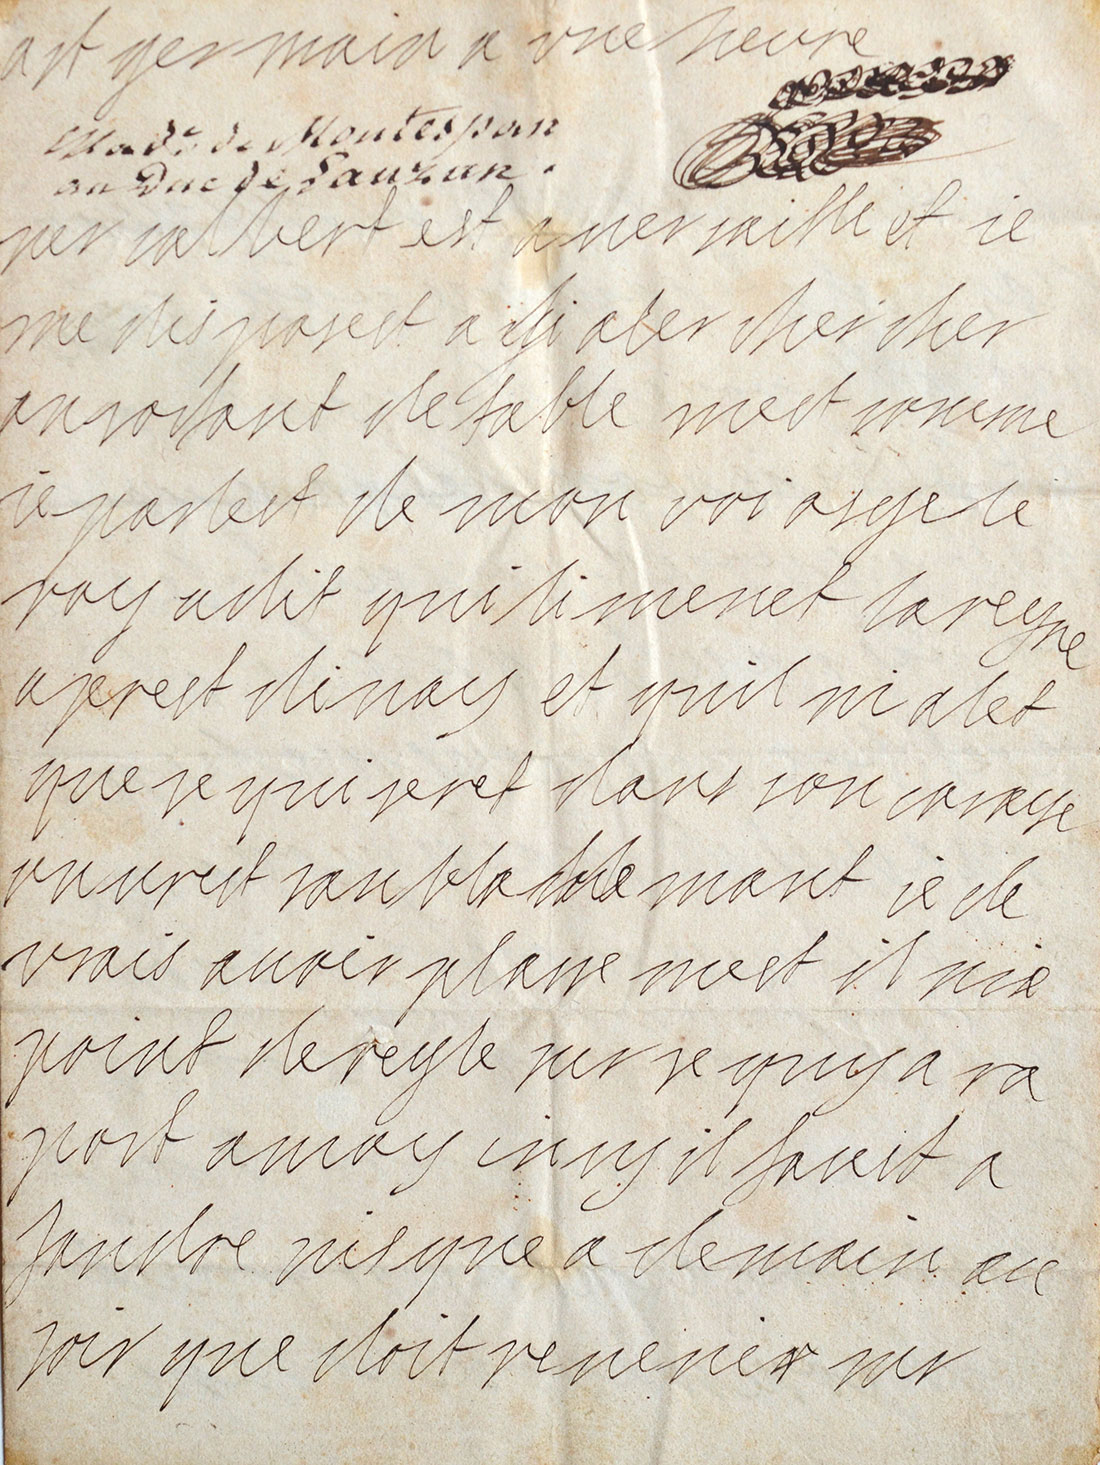 a st germain a une heure
Made. de Montespan
au Duc de Lauzun.
mr colbert est a versaille et ie
me disposest a li aler chercher
an sortant de table mest comme
ie parlest de mon voiasge le
roy a dit qui li menet la reyne
aprest dinay et quil ni alet
que se qui seret dans son carosse
vn vrest sanblablemant ie de
vrais auoir plasse mest il nia
point de reyle sur se quy a ra
port a moy insy il faut a
tandre iusque a demain au
soir que doit reuenir mr